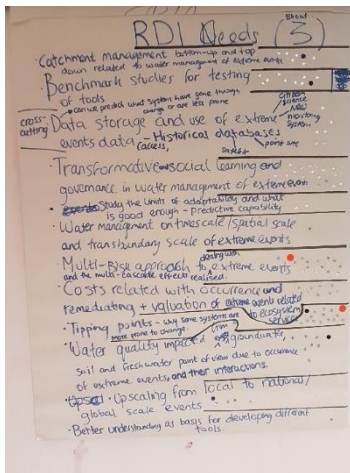 RDI Needs (3)
· Catchment management bottom-up and top
down related to water management of extreme events
· Benchmark studies for testing
of tools
· can we predict what system have gone through
change or are less prone
cross-
cutting
Data storage and use of extreme
citizen
science
monitoring
system
events data, - Historical databases
Transformative social learning and
governance in water management of extreme events
· Study the limits of adaptability and what
is good enough - Predictive capability
· Water management on timescale/spatial scale
and transbundary scale of extreme events
Multi-Risk approach dealing with to extreme events
and the multi-cascade effects realised.
· Costs related with occurrence and
remediating + valuation of extreme events related
to ecosystem
services
· Tipping points - why some systems are
more prone to change.
· Water quality impacted from groundwater,
soil and freshwater point of view due to occurence
of extreme events, and their interactions.
· Upscaling from local to national/
global scale events
· Better understanding as basis for developing different
tools.